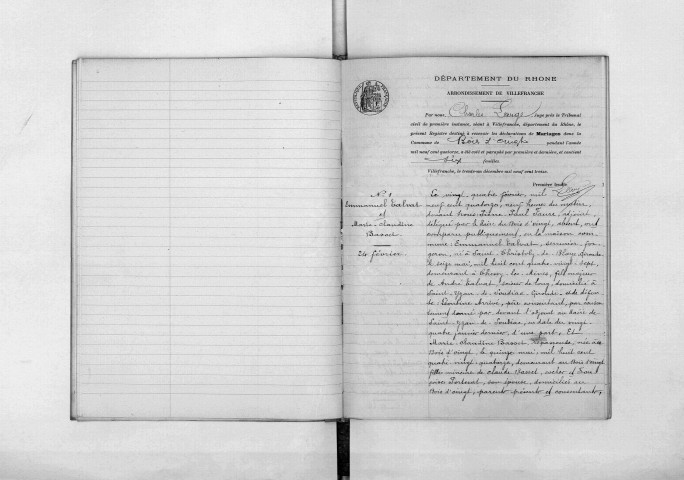 DÉPARTEMENT DU RHONE
ARRONDISSEMENT DE VILLEFRANCHE
Par nous, Charles juge près le Tribunal
civil de première instance, séant à Villefranche, département du Rhône, le
présent Registre destiné à recevoir les déclarations de Mariages dans la
Commune de Bois d'oingt pendant l'année
mil neuf cent quatorze, a été coté et paraphé par première et dernière, et contient
six feuilles.
Villefranche, le trente-un décembre mil neuf cent treize.
Première feuille
N° 1
Emmanuel Calvat
et
Marie-Claudine
Basset
24 février
Le vingt quatre février, mil
neuf cent quatorze, neuf heures du matin,
devant nous Paul Faure, adjoint,
délégué par le Maire du Bois d'oingt, absent, ont
comparu publiquement, en la maison com-
mune: Emmanuel Calvat, for-
geron, né à Saint Christoly de Blaye Gironde
le seize mai, mil huit cent quatre vingt sept,
demeurant à Chessy les Mines, fils majeur
de André Calvat, scieur de long, domicilié à
Saint Yzan de Soudiac Gironde et de défun-
te père consentant, par
donné par devant l'adjoint au Maire de
Saint Yzan de Soudiac en date du vingt
quatre janvier dernier, d'une part, Et
Marie Claudine Basset, Repasseuse, née au
Bois d'oingt, le quinze mai, mil huit cent
quatre vingt quatorze, demeurant au Bois d'oingt
fille mineure de Claude Basset, et Fran-
çoise son épouse, domiciliés au
Bois d'oingt, parents présents et consentants,